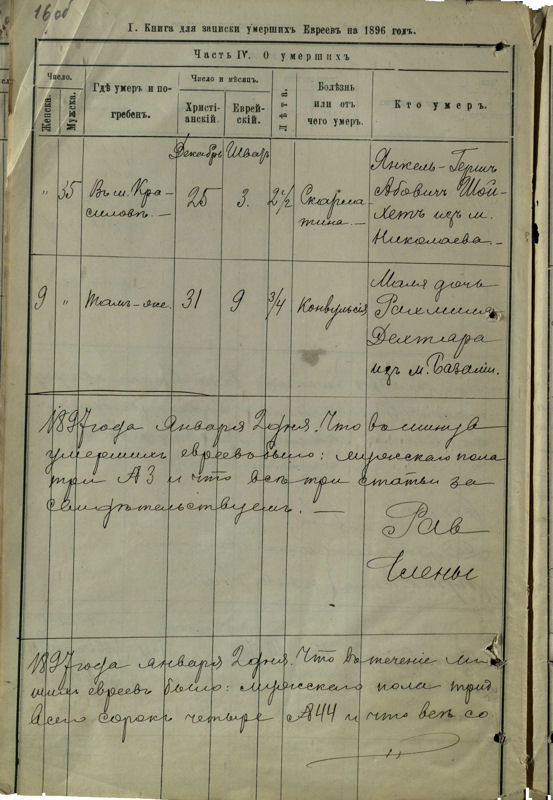 16 об
I. Книга для записки умершихъ Евреевъ на 1896 годъ.
Часть IV. О умершихъ
Число.
Женска.
Мужска.
Гдѣ умеръ и по-
гребенъ.
Число и мѣсяцъ.
Христі-
анскій.
Еврей-
скій.
Лѣта.
Болѣзнь
или отъ
чего умеръ.
Кто умеръ.
Декабрь Шват
" 35 Въ м. Кра-
силовѣ. 25 3. 2 1/2 Скарла
тина.
Янкель-Герш
Абовичъ Шой-
хетъ изъ м.
Николаева.
9 " Тамъ-же. 31 9 3/4 Конвульсія
Маля дочь
Рахмиля
Дехтяра
изъ м. Базалии.
1897 года Января 2 дня. Что въ минув
умершихъ евреевъ было: мужскаго пола
три №3 и что всѣ три статьи за
свидѣтельствуемъ.
Рав
Члены
1897 года января 2 дня. Что въ теченіе ми
шихъ евреевъ было: мужскаго пола трид
всего сорок четыре №44 и что всѣ со